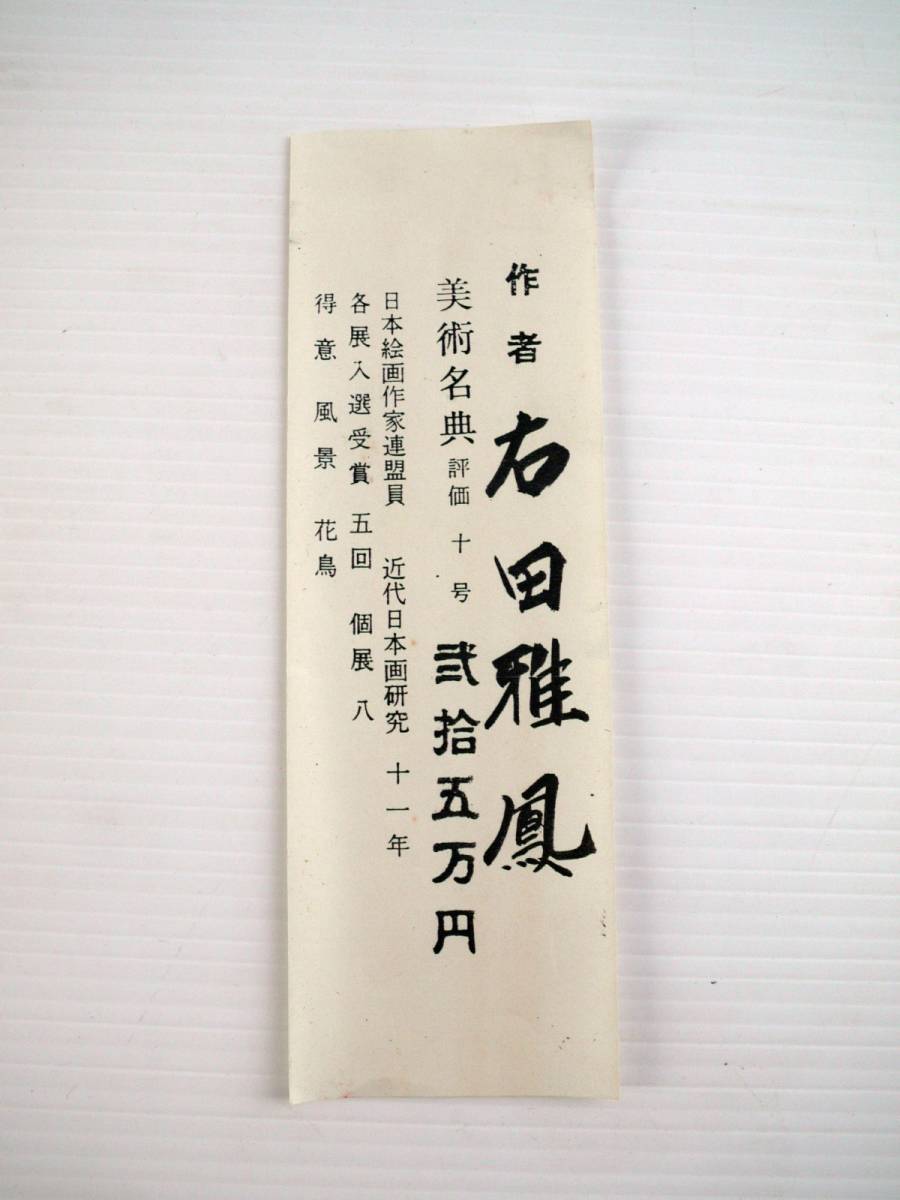 作者 右田雅鳳
美術名典 評価 十号 弐拾五万円
日本絵画作家連盟員 近代日本画研究 十一年
各展入選受賞 五回 個展 八
得意 風景 花鳥